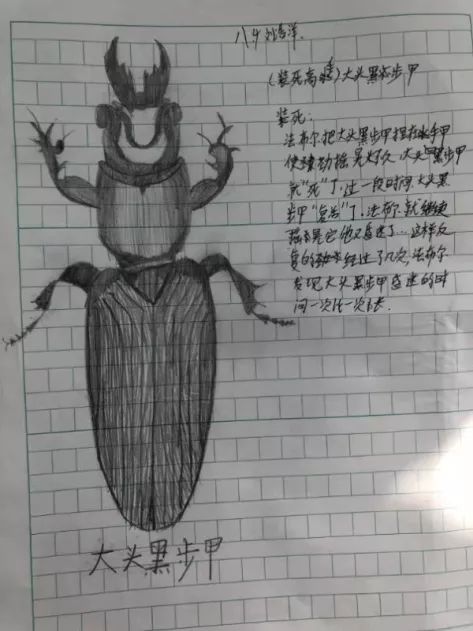 八4
(装死高手)大头黑步甲
装死:
法布尔把大头黑步甲捏在水手甲
使劲摇晃大久,大头黑步甲
就"死"了,过一段时间,大头黑
步甲"复活"了,法布尔就继续
是它他又昏迷了…这样反
复的经过了几次,法布尔
发现大头黑步甲昏迷的时
间一次比一次长
大头黑步甲